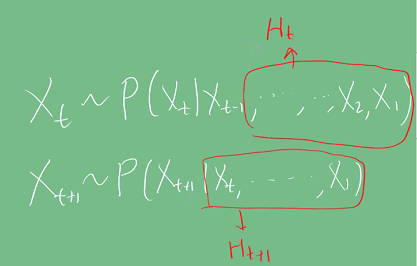 Hₜ
Xₜ ~ P(Xₜ|Xₜ₋₁, ..., ..., X₂, X₁)
Xₜ₊₁ ~ P(Xₜ₊₁|Xₜ, ....., X₁)
Hₜ₊₁